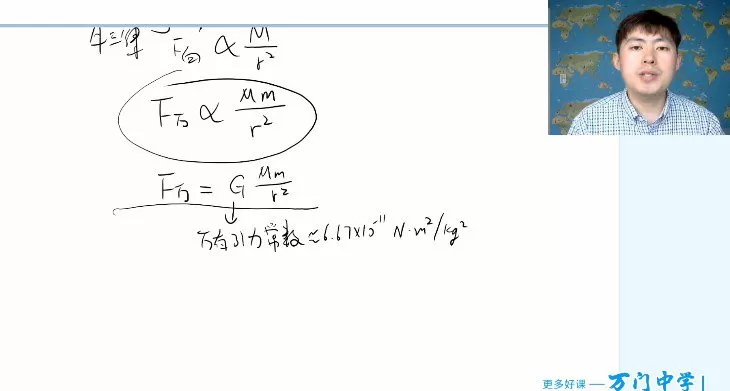 牛三律 F ∝ M/r²
F万 ∝ Mm/r²
F万 = G Mm/r²
万有引力常数≈6.67×10⁻¹¹ N·m²/kg²
更多好课 — 万门中学